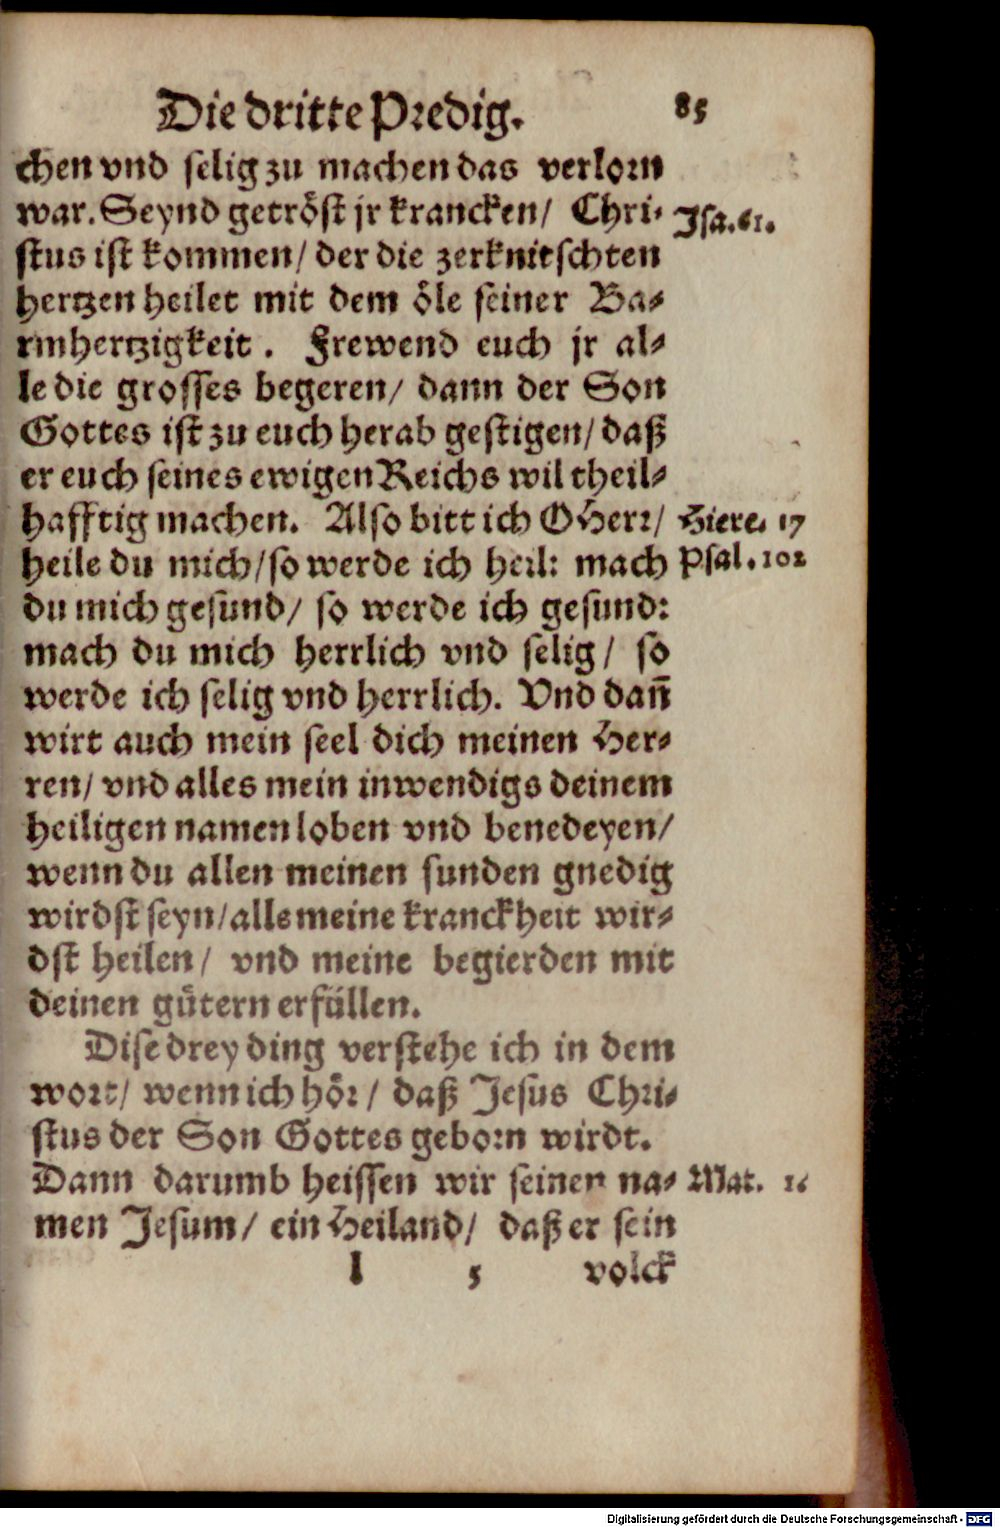 Die dritte Predig. 85
chen vnd selig zu machen das verlorn
war. Seynd getröst jr krancken/ Chri- Isa. 61.
stus ist kommen/ der die zerknitschten
hertzen heilet mit dem öle seiner Ba-
rmhertzigkeit. Frewend euch jr al-
le die grosses begeren/ dann der Son
Gottes ist zu euch herab gestigen/ daß
er euch seines ewigen Reichs wil theil-
hafftig machen. Also bitt ich O Herr/ Hiere. 17
heile du mich/ so werde ich heil: mach Psal. 102
du mich gesund/ so werde ich gesund:
mach du mich herrlich vnd selig/ so
werde ich selig vnd herrlich. Vnd dañ
wirt auch mein seel dich meinen Her-
ren/ vnd alles mein inwendigs deinem
heiligen namen loben vnd benedeyen/
wenn du allen meinen sunden gnedig
wirdst seyn/ alle meine kranckheit wir-
dst heilen/ vnd meine begierden mit
deinen gütern erfüllen.
Dise drey ding verstehe ich in dem
wort/ wenn ich hör/ daß Jesus Chri-
stus der Son Gottes geborn wirdt.
Dann darumb heissen wir seinen na- Mat. 1.
men Jesum/ ein Heiland/ daß er sein
l 5 volck
Digitalisierung gefördert durch die Deutsche Forschungsgemeinschaft - DFG